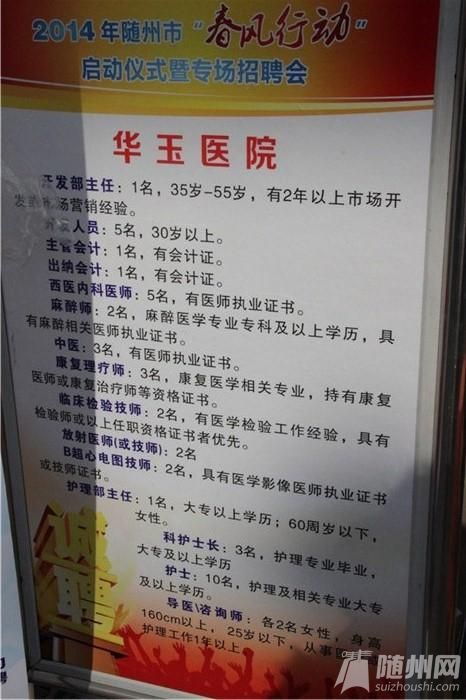 2014年随州市“春风行动”
启动仪式暨专场招聘会
华玉医院
开发部主任：1名，35岁-55岁，有2年以上市场开
发或市场营销经验。
人员：5名，30岁以上。
主管会计：1名，有会计证。
出纳会计：1名，有会计证。
西医内科医师：5名，有医师执业证书。
麻醉师：2名，麻醉医学专业专科及以上学历，具
有麻醉相关医师执业证书。
中医：3名，有医师执业证书。
康复理疗师：3名，康复医学相关专业，持有康复
医师或康复治疗师等资格证书。
临床检验技师：2名，有医学检验工作经验，具有
检验师或以上任职资格证书者优先。
放射医师(或技师)：2名
B超心电图技师：2名，具有医学影像医师执业证书
或技师证书。
护理部主任：1名，大专以上学历；60周岁以下，
女性。
科护士长：3名，护理专业毕业，
大专及以上学历
护士：10名，护理及相关专业大专
及以上学历。
导医\咨询师：各2名女性，身高
160cm以上，25岁以下，从事
护理工作1年以上
诚聘
聘
随州网
suizhoushi.com